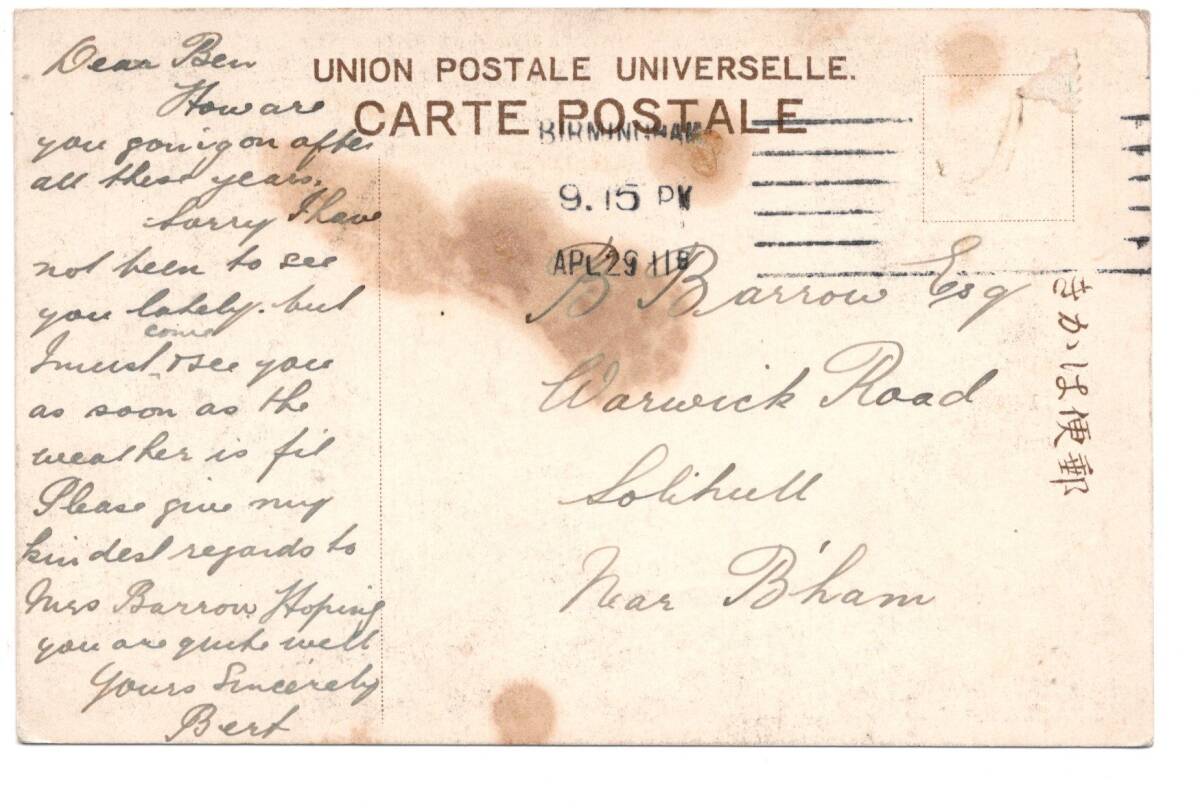 UNION POSTALE UNIVERSELLE.
CARTE POSTALE
BIRMINGHAM
9.15 PM
APL 29 11
Dear Ben
How are
you going on after
all these years.
Sorry I have
not been to see
you lately. but
come
I must & see you
as soon as the
weather is fit
Please give my
kindest regards to
Mrs Barrow Hoping
you are quite well
Yours Sincerely
Bert
B Barrow Esq
Warwick Road
Solihull
Near B'ham
きかは便郵